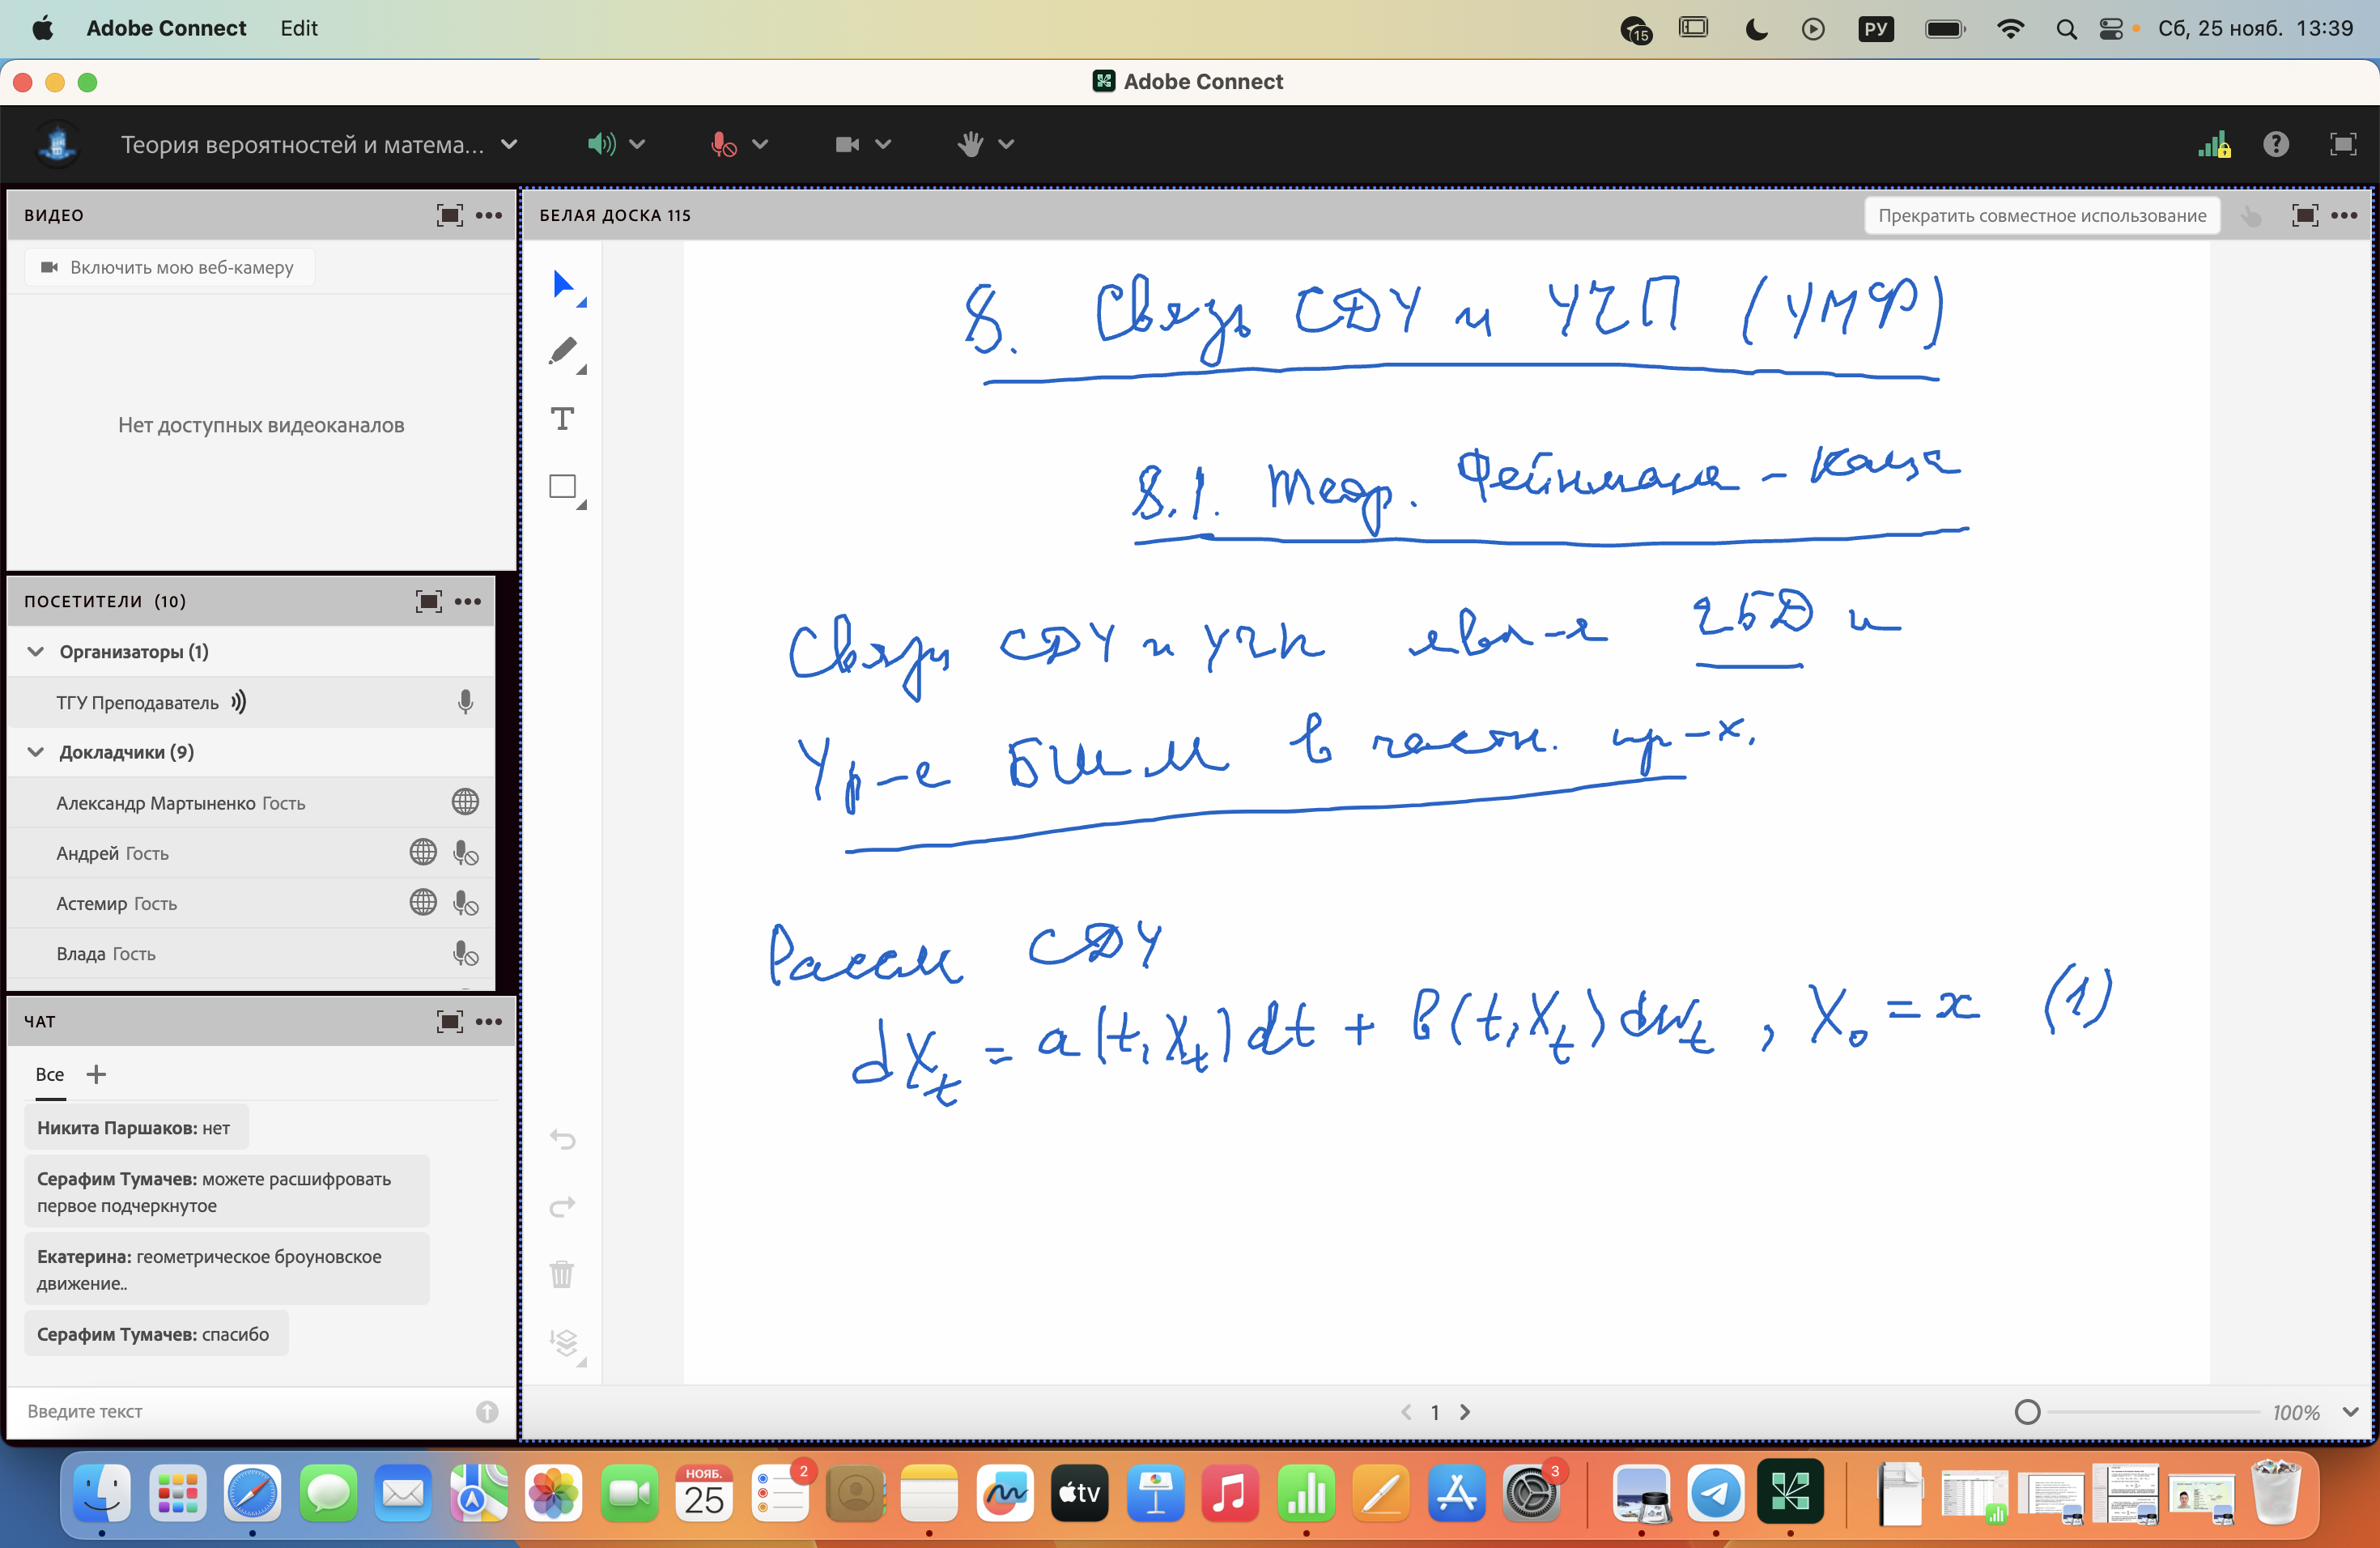 Adobe Connect Edit 15 РУ Сб, 25 нояб. 13:39
Adobe Connect
Теория вероятностей и матема...
ВИДЕО
Включить мою веб-камеру
Нет доступных видеоканалов
ПОСЕТИТЕЛИ (10)
Организаторы (1)
ТГУ Преподаватель
Докладчики (9)
Александр Мартыненко Гость
Андрей Гость
Астемир Гость
Влада Гость
ЧАТ
Все
Никита Паршаков: нет
Серафим Тумачев: можете расшифровать
первое подчеркнутое
Екатерина: геометрическое броуновское
движение..
Серафим Тумачев: спасибо
Введите текст
БЕЛАЯ ДОСКА 115
Прекратить совместное использование
8. Связь СДУ и УЧП (УМФ)
8.1. Теор. Фейнмана - Каца
Связи СДУ и УЧП явл-я ГБД и
Ур-е БШМ в частн. пр-х.
Рассм СДУ
dXₜ = a(t, Xₜ)dt + b(t, Xₜ)dwₜ , X₀ = x (1)
1
100%
НОЯБ.
25
2
tv
3